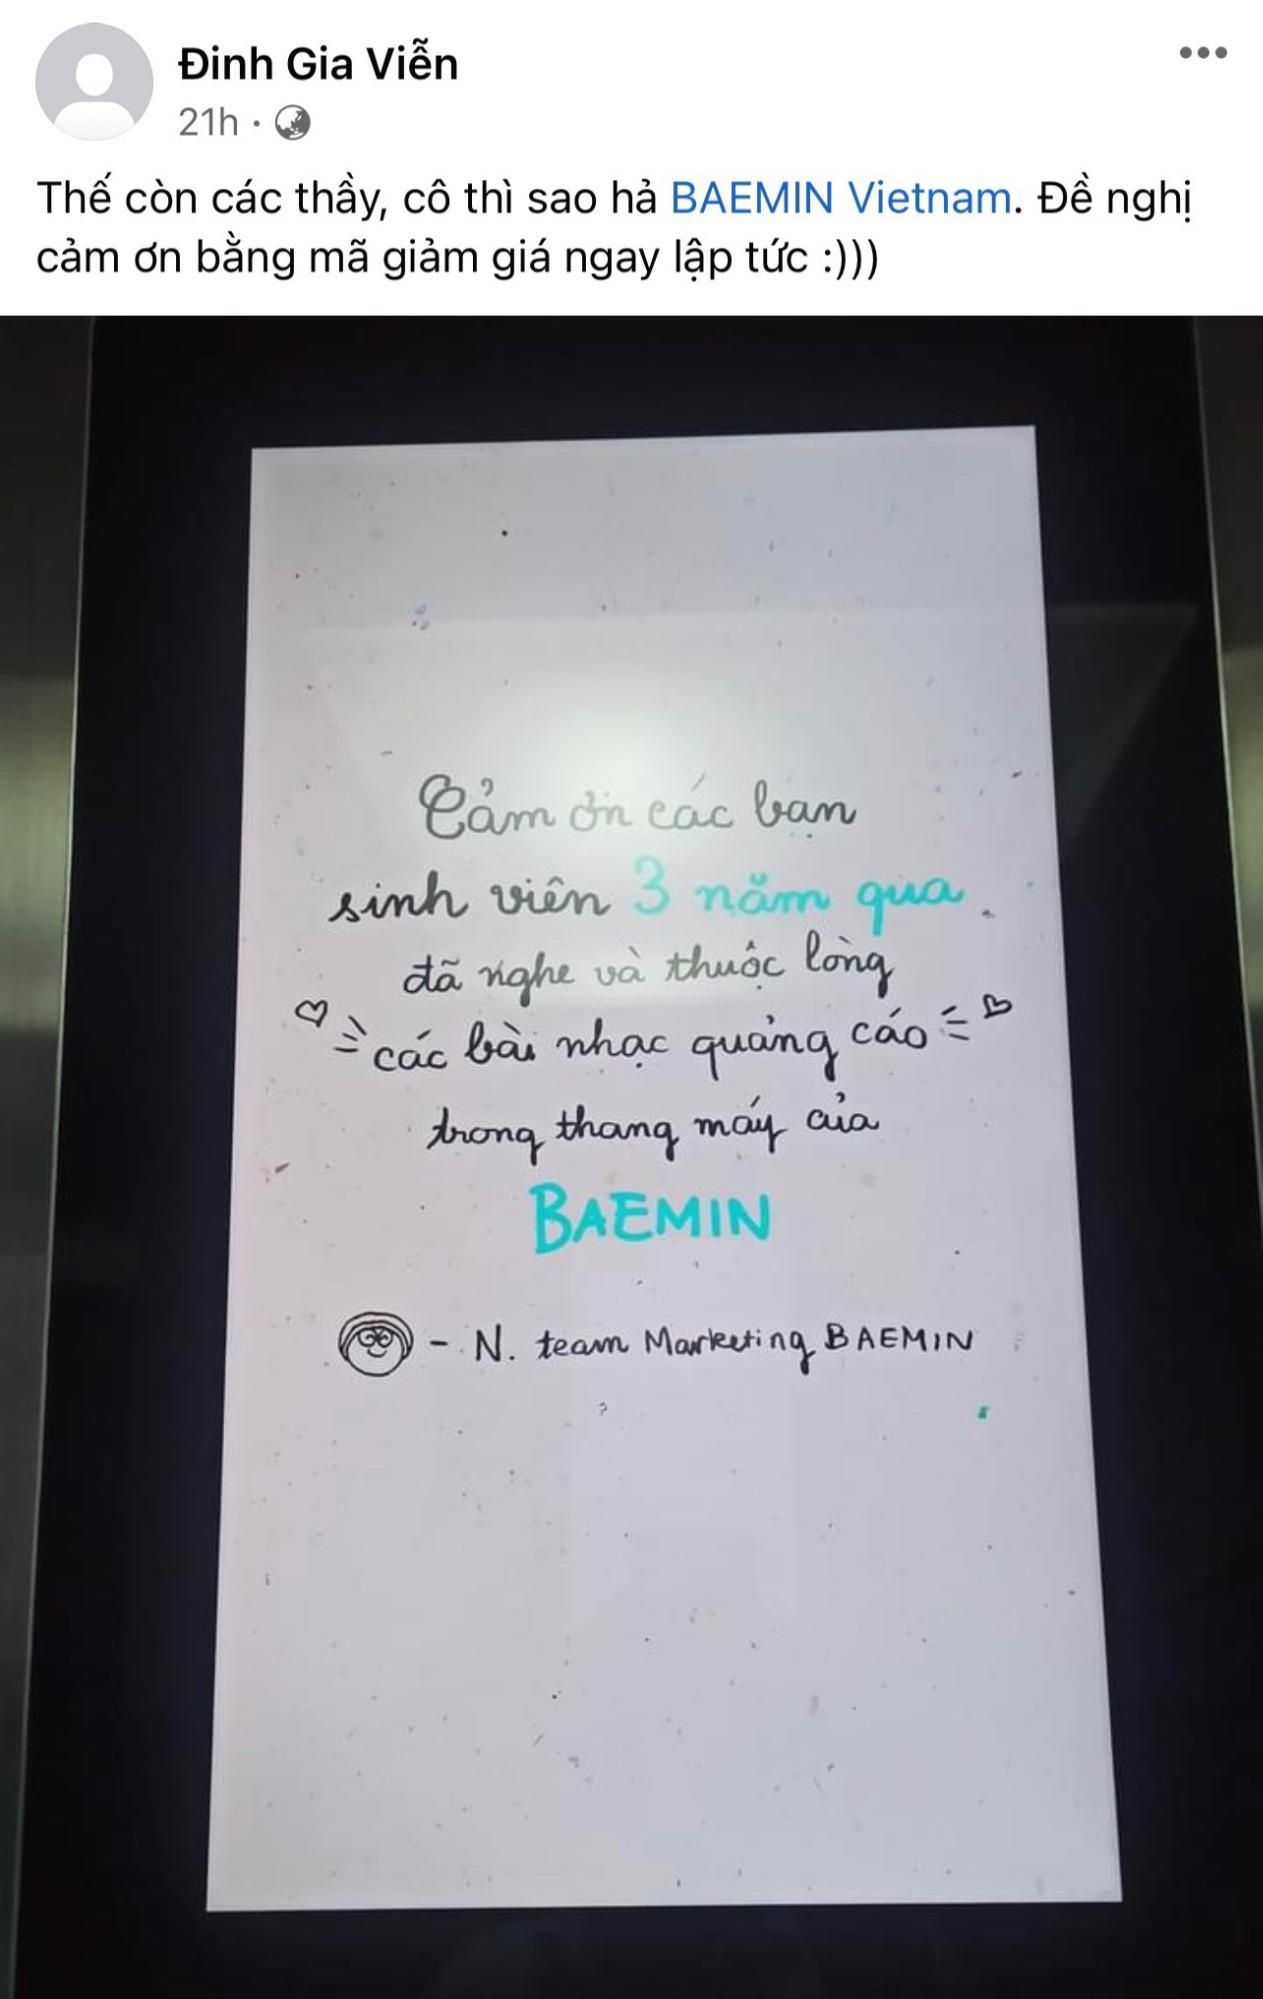 Đinh Gia Viễn
21h ·
Thế còn các thầy, cô thì sao hả BAEMIN Vietnam. Đề nghị
cảm ơn bằng mã giảm giá ngay lập tức :)))
Cảm ơn các bạn
sinh viên 3 năm qua
đã nghe và thuộc lòng
các bài nhạc quảng cáo
trong thang máy của
BAEMIN
- N. team Marketing BAEMIN